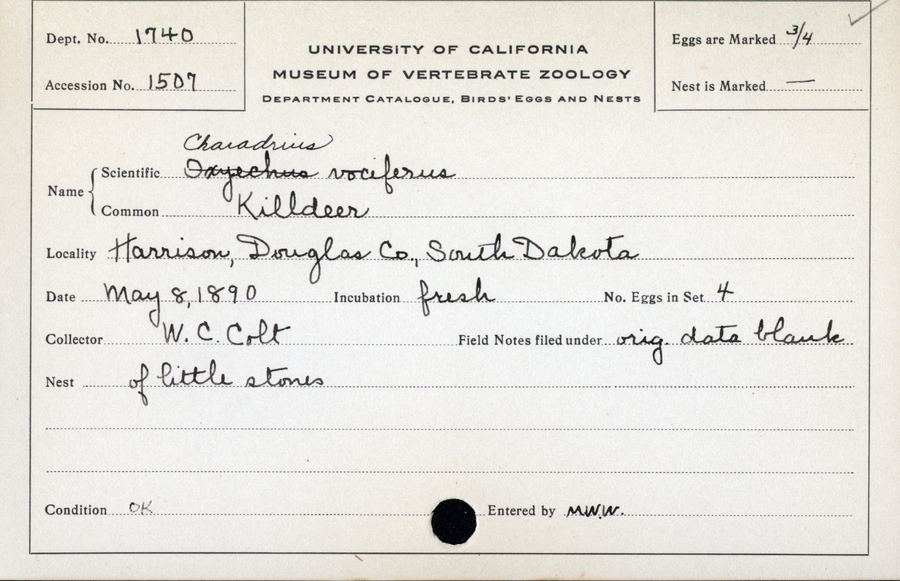 Dept. No. 1740
Accession No. 1507
UNIVERSITY OF CALIFORNIA
MUSEUM OF VERTEBRATE ZOOLOGY
DEPARTMENT CATALOGUE, BIRDS' EGGS AND NESTS
Eggs are Marked 3/4
Nest is Marked —
Charadrius
Name Scientific Oxyechus vociferus
Common Killdeer
Locality Harrison, Douglas Co., South Dakota
Date May 8, 1890 Incubation fresh No. Eggs in Set 4
Collector W. C. Colt Field Notes filed under orig. data blank
Nest of little stones
Condition OK Entered by M.W.W.